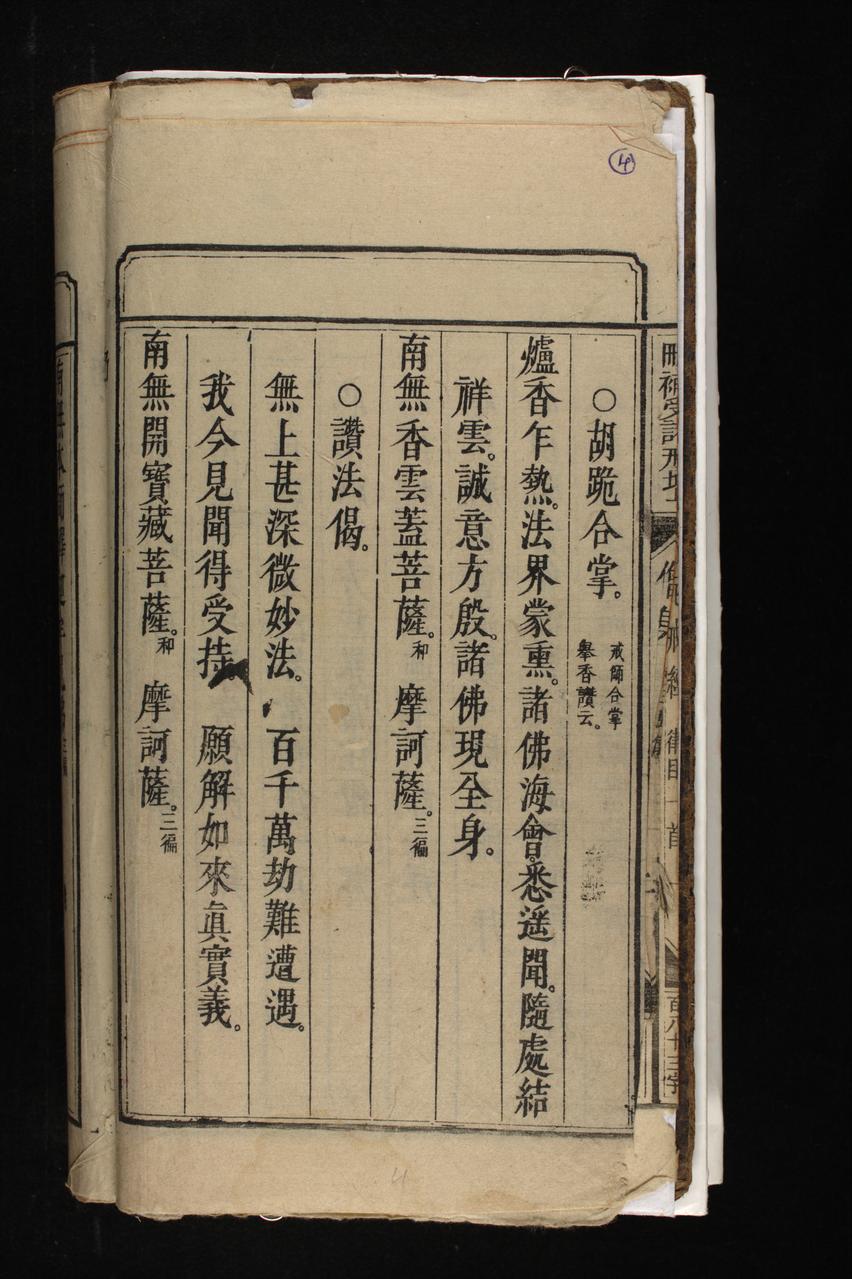 ○胡跪合掌。戒師合掌
舉香讚云。
爐香乍熱。法界蒙熏。諸佛海會。悉遥聞。隨處結
祥雲。誠意方殷。諸佛現全身。
南無香雲蓋菩薩。和 摩訶薩。三徧
○讚法偈。
無上甚深微妙法。 百千萬劫難遭遇。
我今見聞得受持 願解如來眞實義。
南無開寶藏菩薩。和 摩訶薩。三徧
百八十三字
4
4